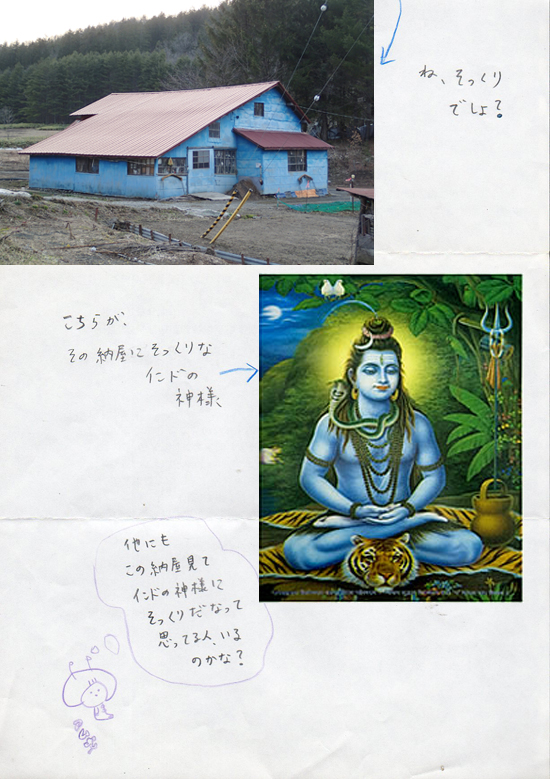 ね、そっくり
でしょ?
こちらが、
その納屋にそっくりな
インドの
神様、
他にも
この納屋見て
インドの神様に
そっくりだなって
思ってる人、いる
のかな?